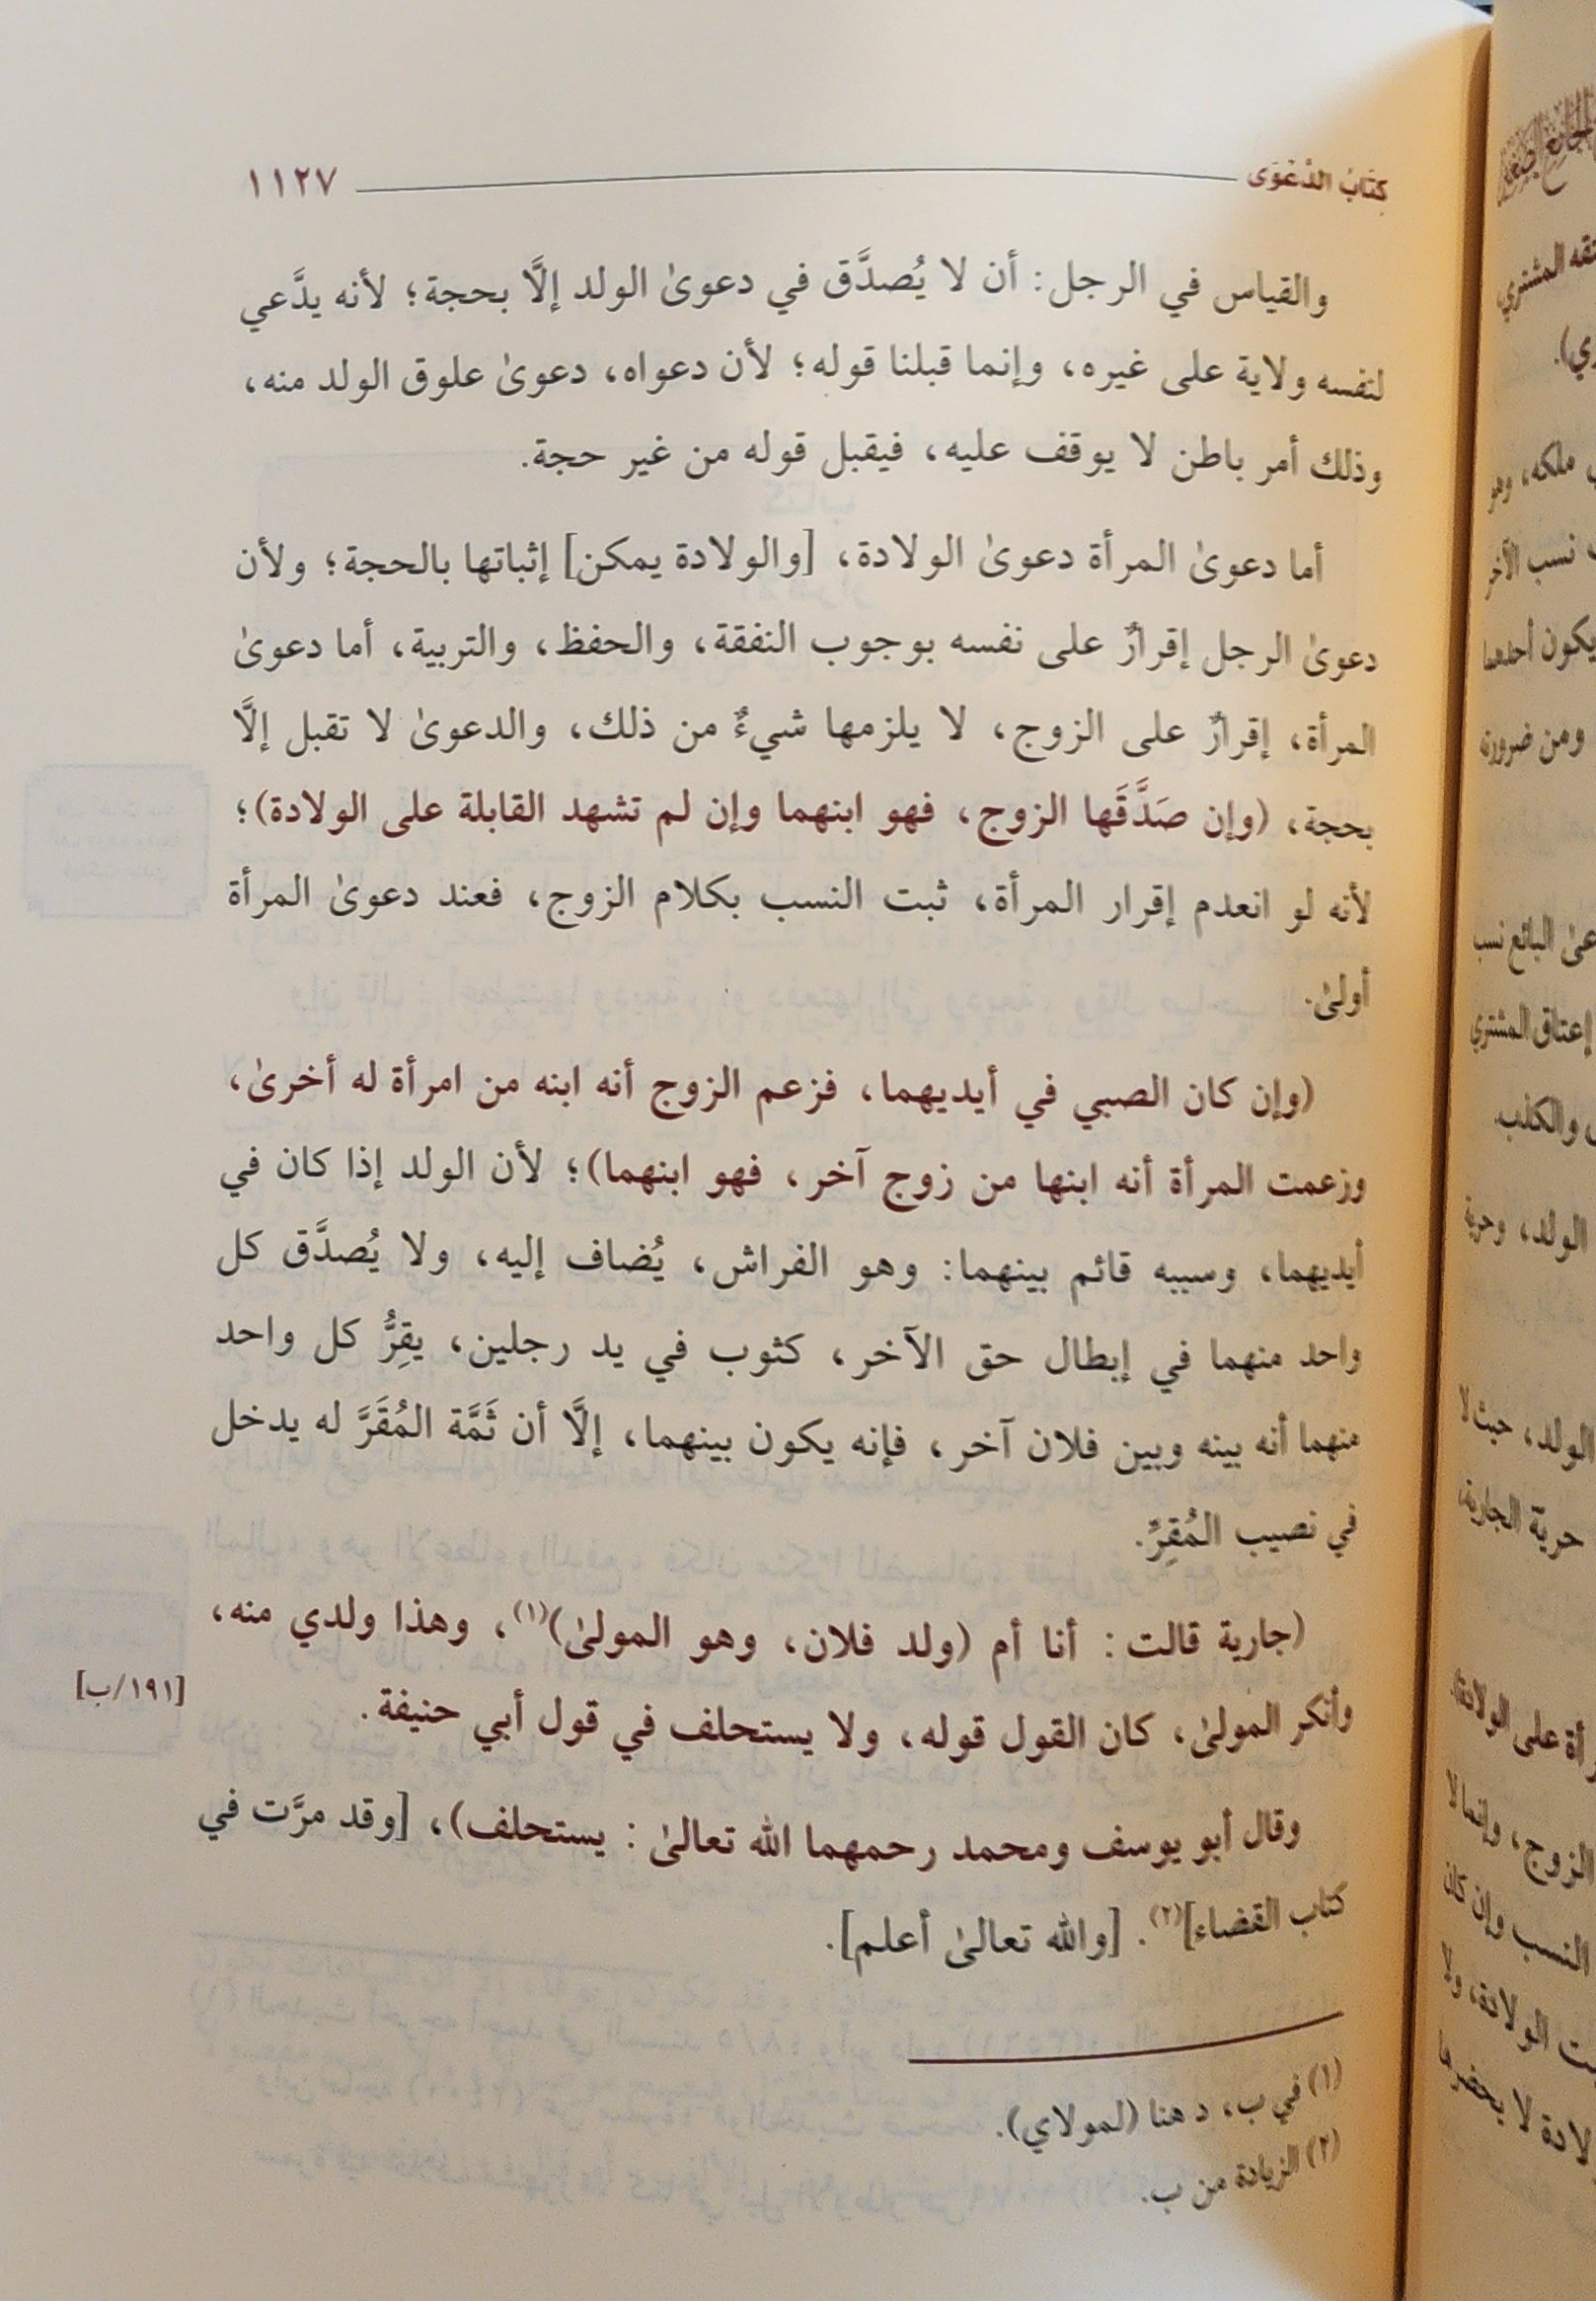 كتاب الدَّعْوَى ١١٢٧
والقياس في الرجل: أن لا يُصدَّق في دعوىٰ الولد إلَّا بحجة؛ لأنه يدَّعي
لنفسه ولاية على غيره، وإنما قبلنا قوله؛ لأن دعواه، دعوىٰ علوق الولد منه،
وذلك أمر باطن لا يوقف عليه، فيقبل قوله من غير حجة.
أما دعوىٰ المرأة دعوىٰ الولادة، [والولادة يمكن] إثباتها بالحجة؛ ولأن
دعوىٰ الرجل إقرارٌ على نفسه بوجوب النفقة، والحفظ، والتربية، أما دعوىٰ
المرأة، إقرارٌ على الزوج، لا يلزمها شيءٌ من ذلك، والدعوىٰ لا تقبل إلَّا
بحجة، (وإن صَدَّقَها الزوج، فهو ابنهما وإن لم تشهد القابلة على الولادة)؛
لأنه لو انعدم إقرار المرأة، ثبت النسب بكلام الزوج، فعند دعوىٰ المرأة
أولىٰ.
(وإن كان الصبي في أيديهما، فزعم الزوج أنه ابنه من امرأة له أخرىٰ،
وزعمت المرأة أنه ابنها من زوج آخر، فهو ابنهما)؛ لأن الولد إذا كان في
أيديهما، وسببه قائم بينهما: وهو الفراش، يُضاف إليه، ولا يُصدَّق كل
واحد منهما في إبطال حق الآخر، كثوب في يد رجلين، يقِرُّ كل واحد
منهما أنه بينه وبين فلان آخر، فإنه يكون بينهما، إلَّا أن ثَمَّة المُقَرَّ له يدخل
في نصيب المُقِرِّ.
(جارية قالت: أنا أم (ولد فلان، وهو المولىٰ)(١)، وهذا ولدي منه،
[١٩١/ب]
وأنكر المولىٰ، كان القول قوله، ولا يستحلف في قول أبي حنيفة.
وقال أبو يوسف ومحمد رحمهما الله تعالىٰ: يستحلف)، [وقد مرَّت في
كتاب القضاء](٢). [والله تعالىٰ أعلم].
(١) في ب، د هنا (لمولاي).
(٢) الزيادة من ب.